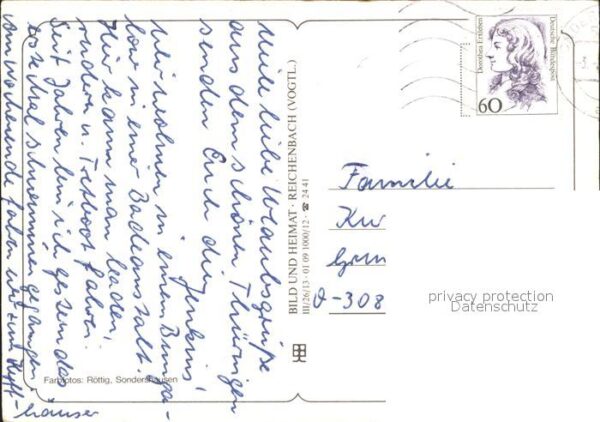 Viele liebe Urlaubsgrüße
aus dem schönen Thüringen
senden Euch die Jenkins!
Wir wohnen in einem Bunga-
low in einer Badeanstalt.
Hier kann man baden,
rudern u. Tretboot fahren.
Seit Jahren bin ich gestern das
erste Mal schwimmen gegangen.
Am Wochenende fahren wir zum Kyff-
häuser
Farbfotos: Röttig, Sondershausen
BILD UND HEIMAT · REICHENBACH (VOGTL.)
III/26/13 · 01 09 1000/12 · ☎ 24 41
Dorothea Erxleben
Deutsche Bundespost
60
Familie
Kur
O-308
privacy protection
Datenschutz